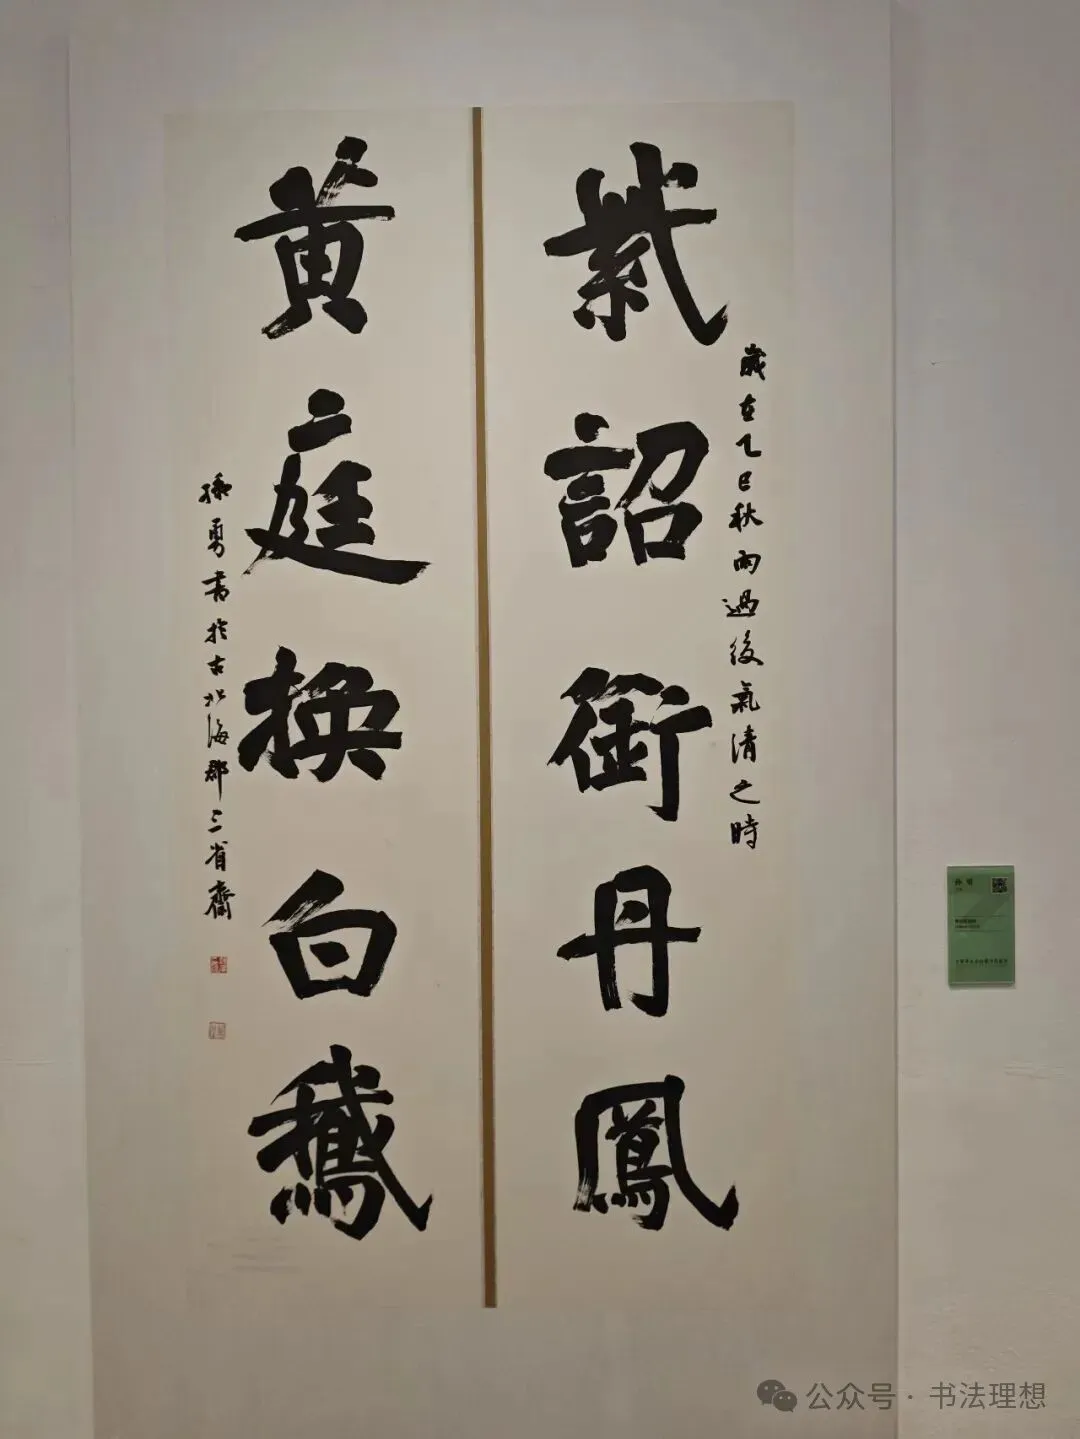 紫詔銜丹鳳
歲在乙巳秋雨過後氣清之時
黄庭換白鵝
孫勇書於古北海郡三省齋
公众号 · 书法理想